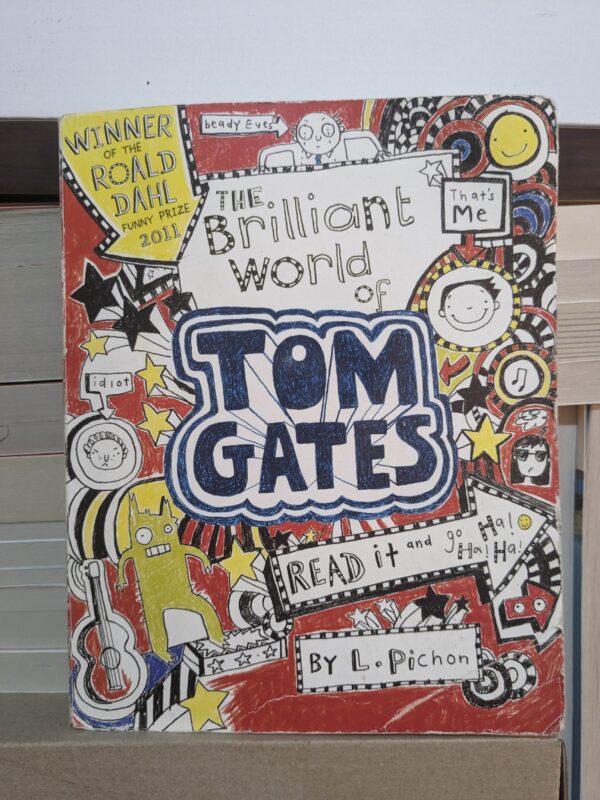 WINNER
OF THE
ROALD
DAHL
FUNNY PRIZE
2011
beady Eyes
THE
Brilliant
World
of
That's
Me
TOM
GATES
idiot
READ it and go Ha!
Ha! Ha!
BY L. Pichon